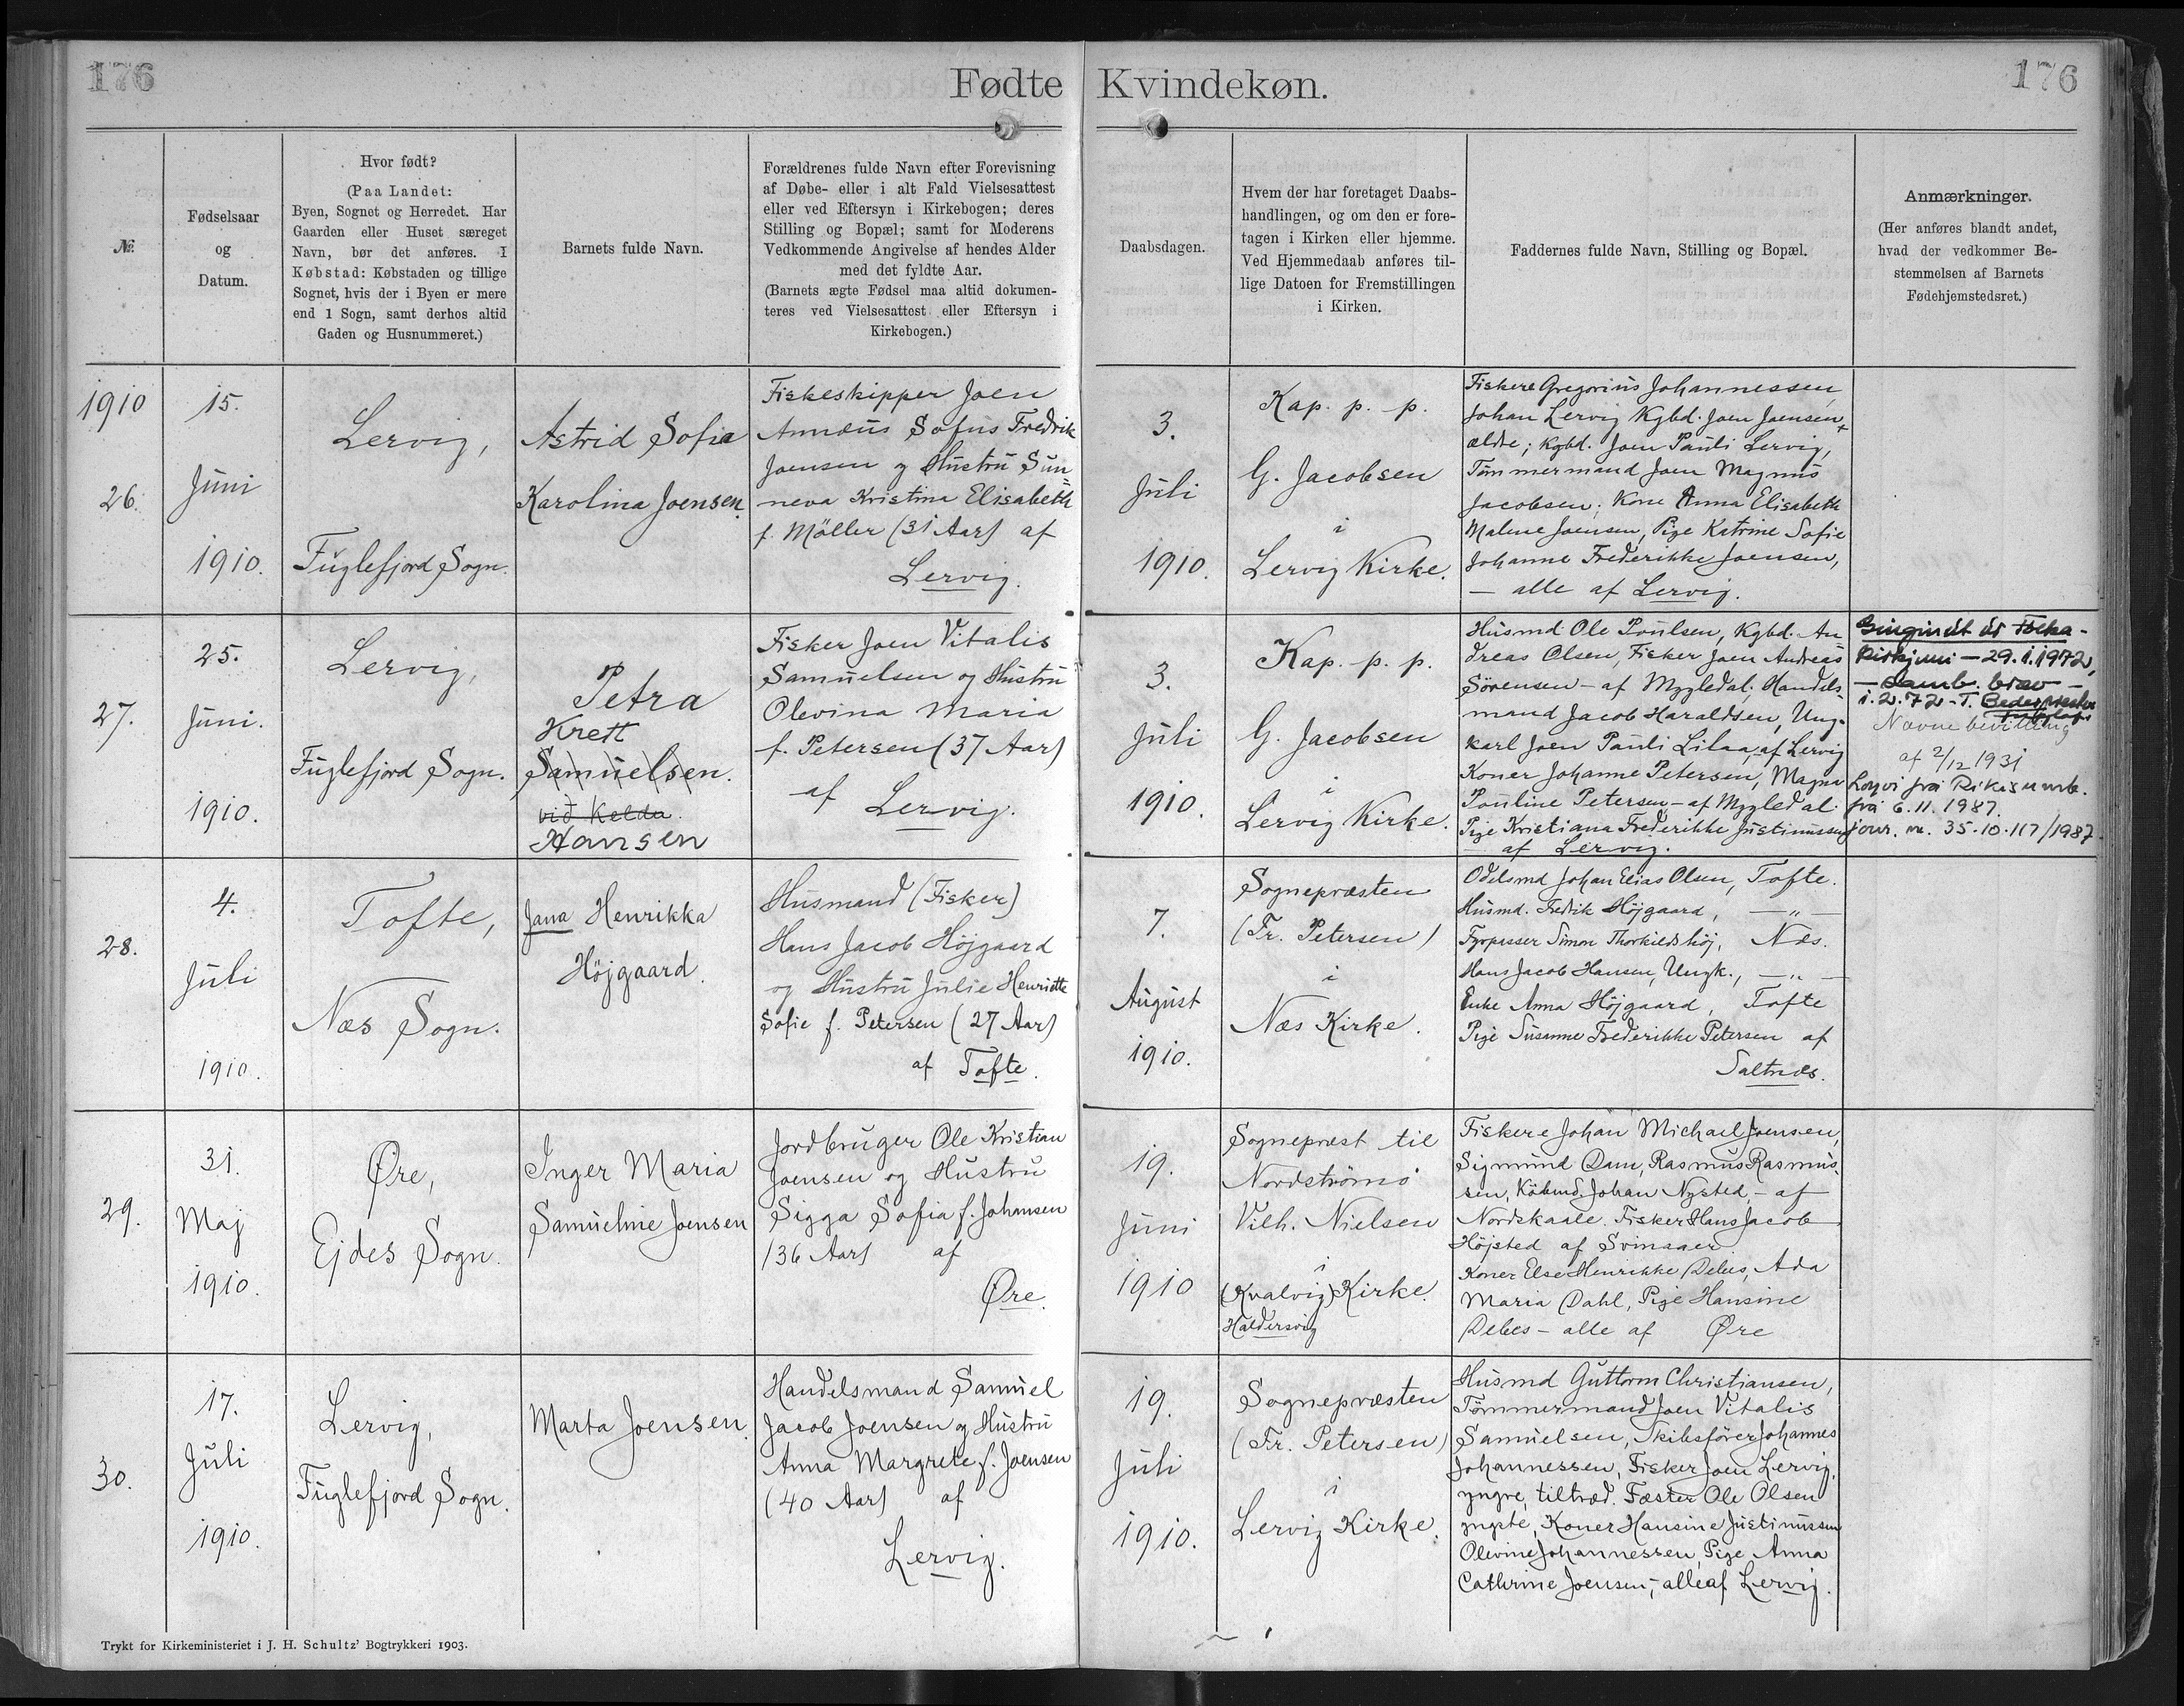 176
Fødte
Kvindekøn.
176
№
Fødselsaar
og
Datum.
Hvor født?
(Paa Landet:
Byen, Sognet og Herredet. Har
Gaarden eller Huset særeget
Navn, bør det anføres. I
Købstad: Købstaden og tillige
Sognet, hvis der i Byen er mere
end 1 Sogn, samt derhos altid
Gaden og Husnummeret.)
Barnets fulde Navn.
Forældrenes fulde Navn efter Forevisning
af Døbe- eller i alt Fald Vielsesattest
eller ved Eftersyn i Kirkebogen; deres
Stilling og Bopæl; samt for Moderens
Vedkommende Angivelse af hendes Alder
med det fyldte Aar.
(Barnets ægte Fødsel maa altid dokumen-
teres ved Vielsesattest eller Eftersyn i
Kirkebogen.)
Daabsdagen.
Hvem der har foretaget Daabs-
handlingen, og om den er fore-
tagen i Kirken eller hjemme.
Ved Hjemmedaab anføres til-
lige Datoen for Fremstillingen
i Kirken.
Faddernes fulde Navn, Stilling og Bopæl.
Anmærkninger.
(Her anføres blandt andet,
hvad der vedkommer Be-
stemmelsen af Barnets
Fødehjemstedsret.)
1910
26.
15.
Juni
1910.
Lervig,
Fuglefjord Sogn.
Astrid Sofie
Karolina Joensen.
Fiskeskipper Joen
Annæus Sofus Fredrik
Joensen og Hustru Sun
neva Kristina Elisabeth
f. Möller (31 Aar) af
Lervig.
3.
Juli
1910.
Kap. p. p.
G. Jacobsen
i
Lervig Kirke.
Fiskere Gregorius Johannessen,
Johan Lervig Kgbd. Joen Joensen
ældre; Kgbd. Joen Pauli Lervig,
Tømmermand Joen Magnus
Jacobsen; Kone Anna Elisabeth
Malene Joensen, Pige Katrine Sofie
Johanne Frederikke Joensen,
— alle af Lervig.
27.
25.
Juni.
1910.
Lervig,
Fuglefjord Sogn.
Petra
Krett
Samuelsen.
við Kelda
Hansen
Fisker Joen Vitalis
Samuelsen og Hustru
Olevina Maria
f. Petersen (37 Aar)
af Lervig.
3.
Juli
1910.
Kap. p. p.
G. Jacobsen
i
Lervig Kirke.
Husmd Ole Poulsen, Kgbd. An
dreas Olsen, Fisker Joen Andreas
Sörensen – af Mygledal; Handels-
mand Jacob Haraldsen, Ung-
karl Joen Pauli Lilaa, – af Lervig
Koner Johanne Petersen, Magna
Pouline Petersen – af Mygledal
Pige Kristiana Frederikke Justinussen
— af Lervig.
úr Fólka-
kirkjuni — 29.1.1972,
— samb. bræv —
1.2.72 - T.
Navnebevilling
af 2/12 1931
Loyvi frá Rikisumb.
frá 6.11.1987.
jour. nr. 35-10-117/1987
28.
4.
Juli
1910.
Tofte,
Næs Sogn.
Jana Henrikka
Højgaard.
Husmand (Fisker)
Hans Jacob Højgaard
og Hustru Julie Henriette
Sofie f. Petersen (27 Aar)
af Tofte.
7.
August
1910.
Sognepræsten
(Fr. Petersen)
i
Næs Kirke.
Odelsmd Johan Elias Olsen, Tofte.
Husmd. Fredrik Højgaard, — „ —
Fyrpasser Simon Thorkildshöj, Næs.
Hans Jacob Hansen, Ungk., — „ —
Enke Anna Højgaard, Tofte
Pige Susanne Frederikke Petersen af
Saltnæs.
29.
31.
Maj
1910.
Øre,
Ejdes Sogn.
Inger Maria
Samueline Joensen
Jordbruger Ole Kristian
Joensen og Hustru
Sigga Sofia f. Johansen
(36 Aar) af
Øre.
19.
Juni
1910
Sognepræst til
Nordströmö
Vilh. Nielsen
i
(Kvalvig) Kirke.
Haldersvig
Fiskere Johan Michael Joensen,
Sigmund Dam, Rasmus Rasmus-
sen, Köbmd. Johan Nysted, – af
Nordskaale. Fisker Hans Jacob
Höjsted af Svinaaer.
Koner Else Henrikke Debes, Ada
Maria Dahl, Pige Hansine
Debes – alle af Øre
30.
17.
Juli
1910.
Lervig,
Fuglefjord Sogn.
Marta Joensen.
Handelsmand Samuel
Jacob Joensen og Hustru
Anna Margrete f. Joensen
(40 Aar) af
Lervig.
19.
Juli
1910.
Sognepræsten
(Fr. Petersen)
i
Lervig Kirke.
Husmd Guttorm Christiansen,
Tømmermand Joen Vitalis
Samuelsen, Skibsfører Johannes
Johannessen, Fisker Joen Lervig,
yngre, tiltræd. Fæster Ole Olsen
yngste, Koner Hansine Justinussen
Olevine Johannessen, Pige Anna
Cathrine Joensen, – alle af Lervig.
Trykt for Kirkeministeriet i J. H. Schultz' Bogtrykkeri 1903.